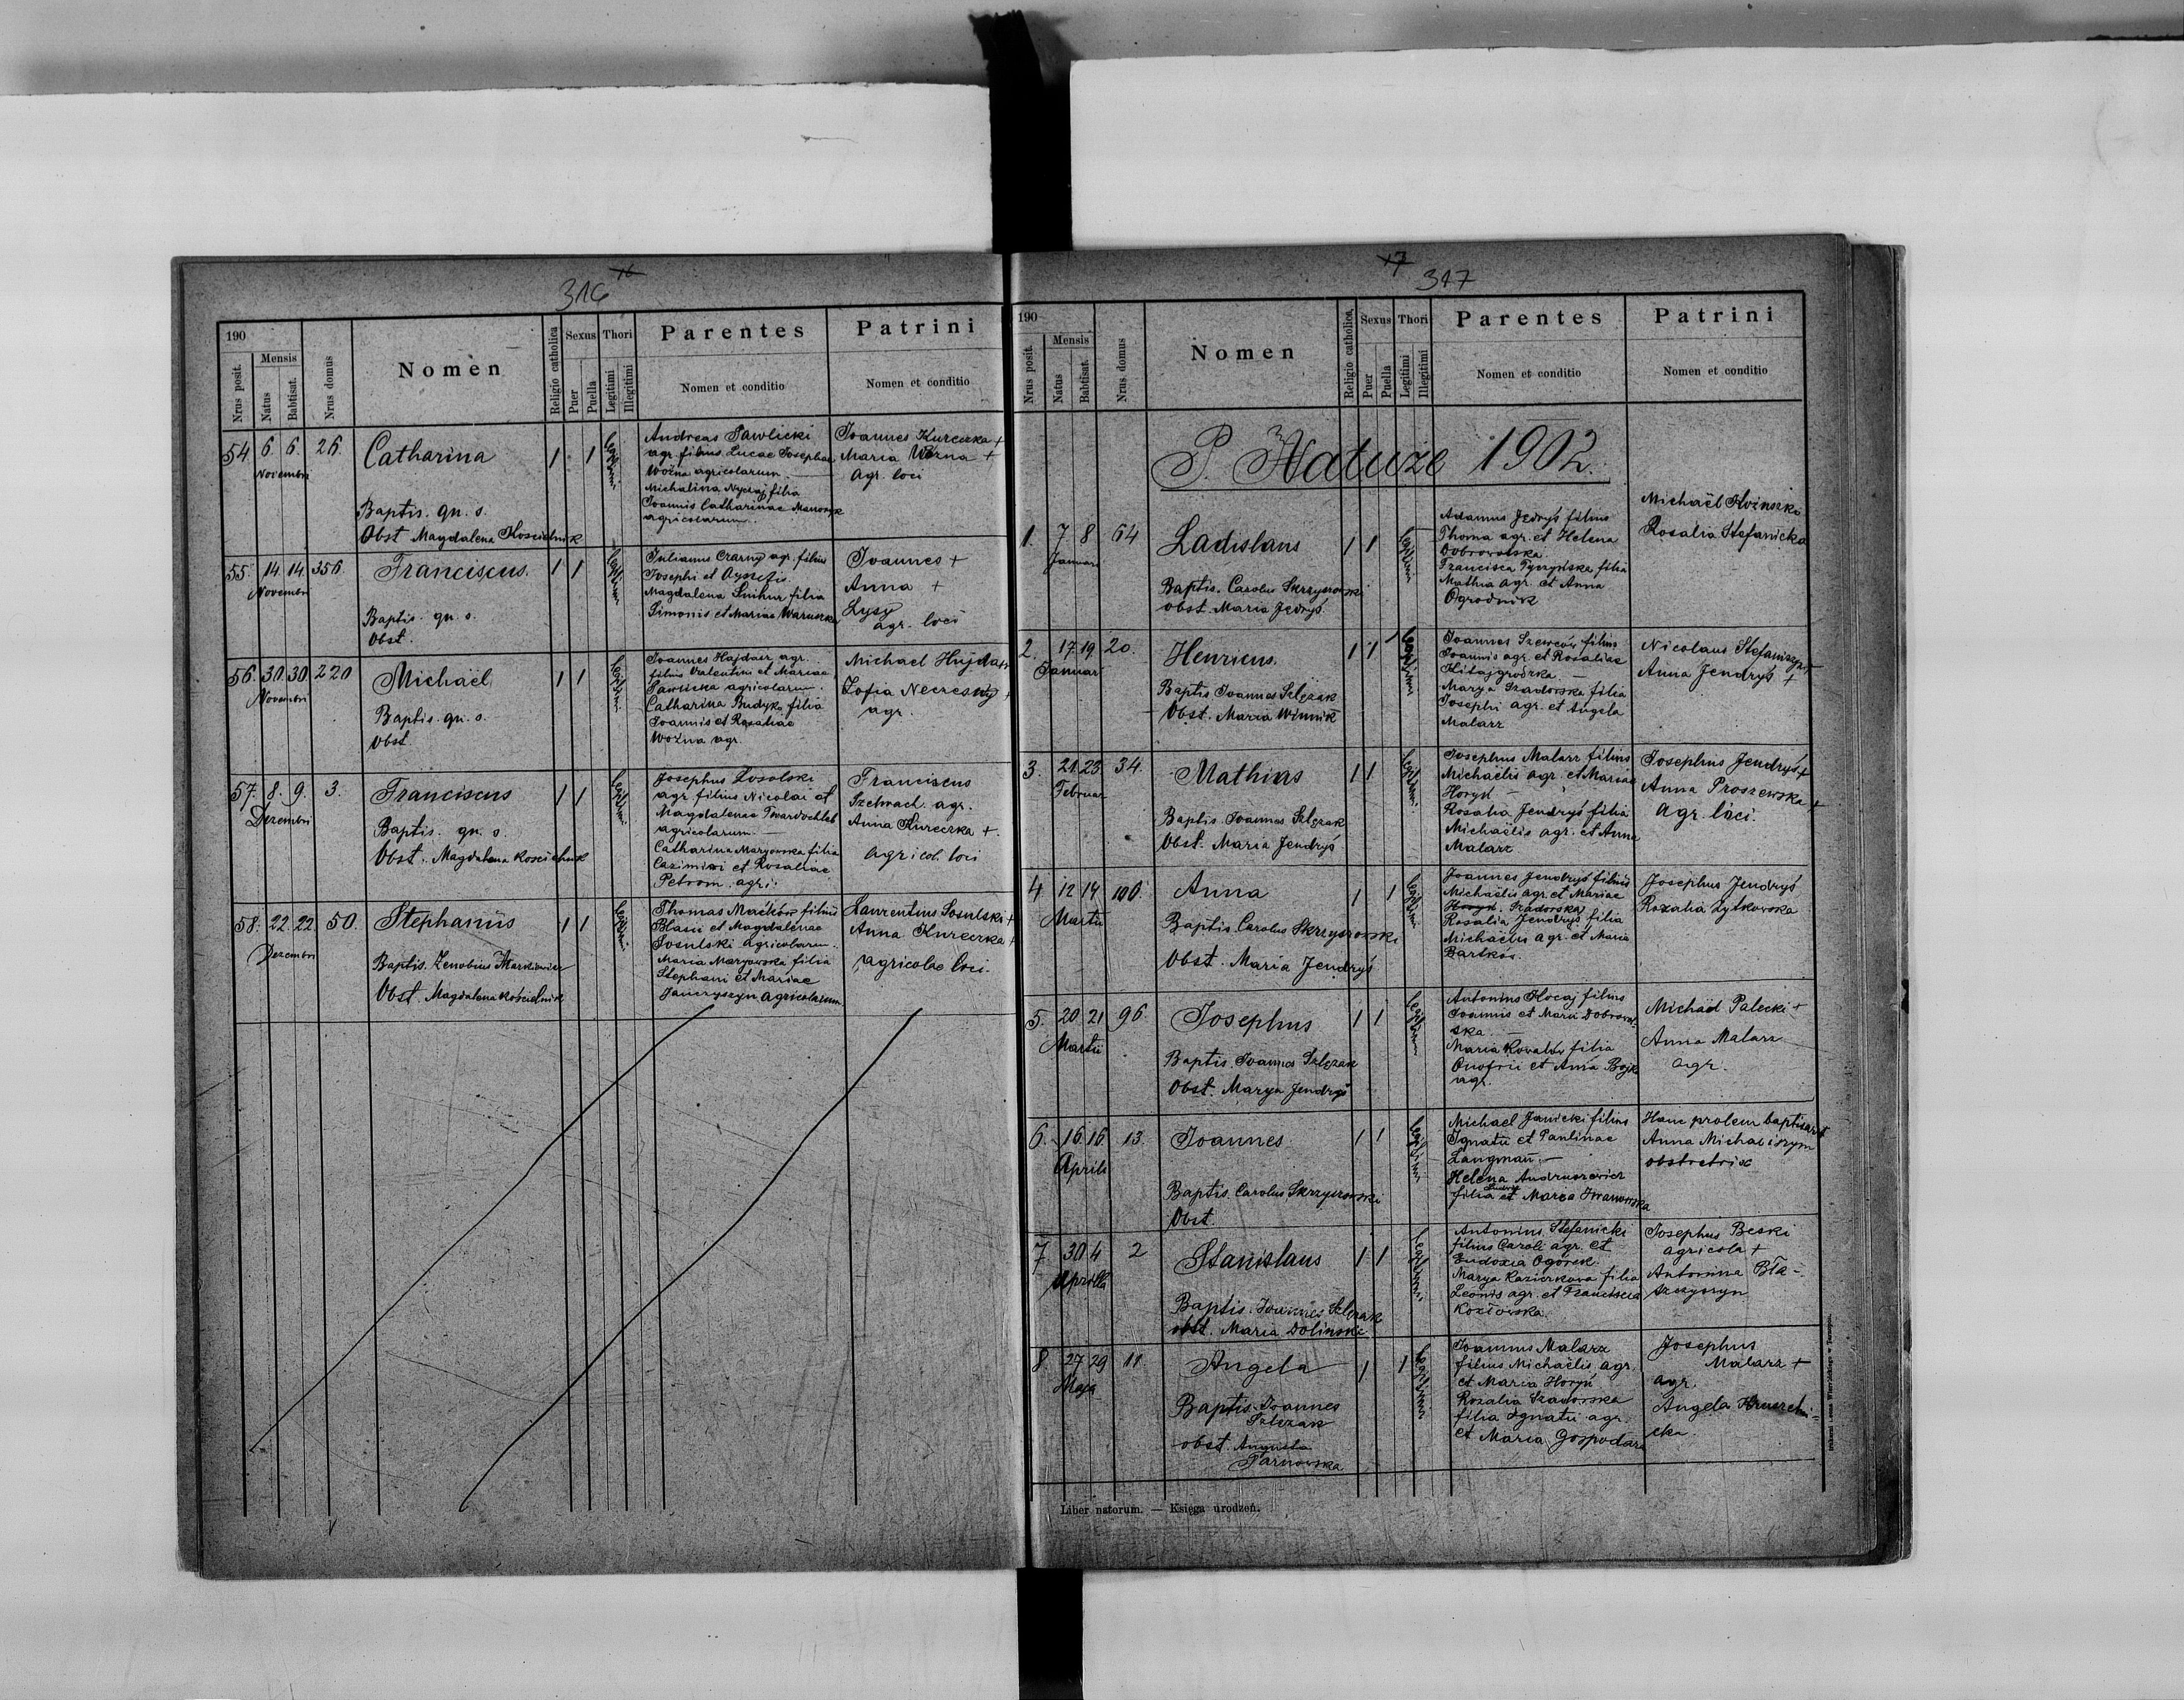 316
190
Nrus posit.
Mensis
Natus
Babtisat.
Nrus domus
Nomen
Religio catholica
Sexus
Puer
Puella
Thori
Legitimi
Illegitimi
Parentes
Nomen et conditio
Patrini
Nomen et conditio
54 6. 6. 26.
Novembri
Catharina
Baptis. qu. s.
Obst Magdalena Kościelnik
1 1
legitimi
Andreas Pawlicki
agr. filius Lucae Josephae
Woźna agricolarum
Michalina Nyczaj filia
Joannis Catharinae
agricolarum.
Joannes Kureczka +
Maria Wozna +
agr. loci
55 14. 14. 356
Novembri
Franciscus.
Baptis. qu. s.
Obst.
1 1
legitimi
Julianus Czarny agr. filius
Josephi et
Magdalena Snihur filia
Simonis et Mariae
Joannes +
Anna +
Łysy
agr. loci
56. 30. 30. 220
Novembri
Michaël
Baptis. qu. s.
Obst.
1 1
legitimi
Joannes Hajdasz agr.
filius Valentini et Mariae
Pawlicka agricolarum.
Catharina Budyka filia
Joannis et Rosaliae
Woźna agr.
Michael Hajdasz
Zofia
agr.
57. 8. 9. 3.
Dezembri
Franciscus
Baptis. qu. s.
Obst. Magdalena Kościelnik
1 1
legitimi
Josephus Sosolski
agr. filius Nicolai et
Magdalenae Twardochleb
agricolarum.
Catharina Maryowska filia
Cazimiri et Rosaliae
Petrom. agri.
Franciscus
Szelwach. agr.
Anna Kureczka +.
agricol. loci
58. 22. 22. 50.
Dezembri
Stephanus
Baptis. Zenobius Markiewicz
Obst. Magdalena Kościelnik
1 1
legitimi
Thomas Maćków filius
Blasii et Magdalenae
Sosulski agricolarum.
Maria Maryowska filia
Stephani et Mariae
Janczyszyn agricolarum
Laurentius Sosulski +
Anna Kureczka +
agricolae loci.
17
317
190
Nrus posit.
Mensis
Natus
Babtisat.
Nrus domus
Nomen
Religio catholica,
Sexus
Puer
Puella
Thori
Legitimi
Illegitimi
Parentes
Nomen et conditio
Patrini
Nomen et conditio
P. Hatuże 1902.
1. 7 8 64
Januari
Ladislaus
Baptis. Carolus Skrzyszowski
obst. Maria Jędryś
1 1
legitimi
Adamus Jędryś filius
Thoma agr. et Helena
Dobrowolska
Francisca Pyczyńska filia
Mathia agr. et Anna
Ogrodnik
Michaël
Rosalia Stefanicka
2. 17. 19. 20.
Januar
Henricus.
Baptis Joannes Szlęzak
Obst. Maria Winnik
1 1
legitimi
Joannes Szewców filius
Joannis agr. et Rosaliae
Marya Szadorska filia
Josephi agr. et Angela
Malarz
Nicolaus Stefaniszyn +
Anna Jendryś +
3. 21. 23. 34.
Februar
Mathias
Baptis Joannes Szlęzak
Obst. Maria Jendryś
1 1
legitimi
Josephus Malarz filius
Michaëlis agr. et Mariae
Horyń
Rosalia Jendryś filia
Michaëlis agr. et Anna
Malarz
Josephus Jendryś +
Anna Proszewska +
agr. loci.
4 12 14 100.
Martii
Anna
Baptis Carolus Skrzyszowski
Obst. Maria Jendryś
1 1
legitimi
Joannes Jendryś filius
Michaëlis agr. et Mariae
Horyń. Szadorska
Rosalia Jendryś filia
Michaëlis agr. et Maria
Bartków.
Josephus Jendryś
Rozalia Żytkowska
5. 20. 21 96
Martii
Josephus
Baptis. Joannes Szlęzak
Obst. Marya Jendryś
1 1
legitimi
Antonius Hocaj filius
Joannis et Marii Dobrowol-
ska.
Maria Kowalów filia
Onofrii et Anna Bojk
agr.
Michaël Palecki +
Anna Malarz
agr.
6. 16. 16. 13.
Aprili
Joannes
Baptis. Carolus Skrzyszowski
Obst.
1 1
legitimi
Michael Janicki filius
Ignatii et Paulinae
Langman.
Helena Andruszewicz
filia et Maria Iwanowska
Hanc prolem baptisavit
Anna Michaliszyn
obstetrix
7 30 4 2
Aprilis
Stanislaus
Baptis. Joannes Szlezak
obst. Maria Dolinska
1 1
legitimi
Antonius Stefanicki
filius Caroli agr. et
Eudoxia Ogórek.
Marya Kazierkowa filia
Leonis agr. et Francisca
Kozłowska.
Josephus Beski
agricola +
Antonina Bła-
szczyszyn
8 27 29 11
Maja
Angela
Baptis. Joannes
Szlezak
obst. Augusta
Tarnowska
1 1
legitimi
Joannus Malarz
filius Michaëlis agr.
et Maria Horyń
Rozalia Szadorska
filia Ignatii agr.
et Maria Gospodarz
Josephus
Malarz +
agr.
Angela
Liber natorum. — Księga urodzeń.